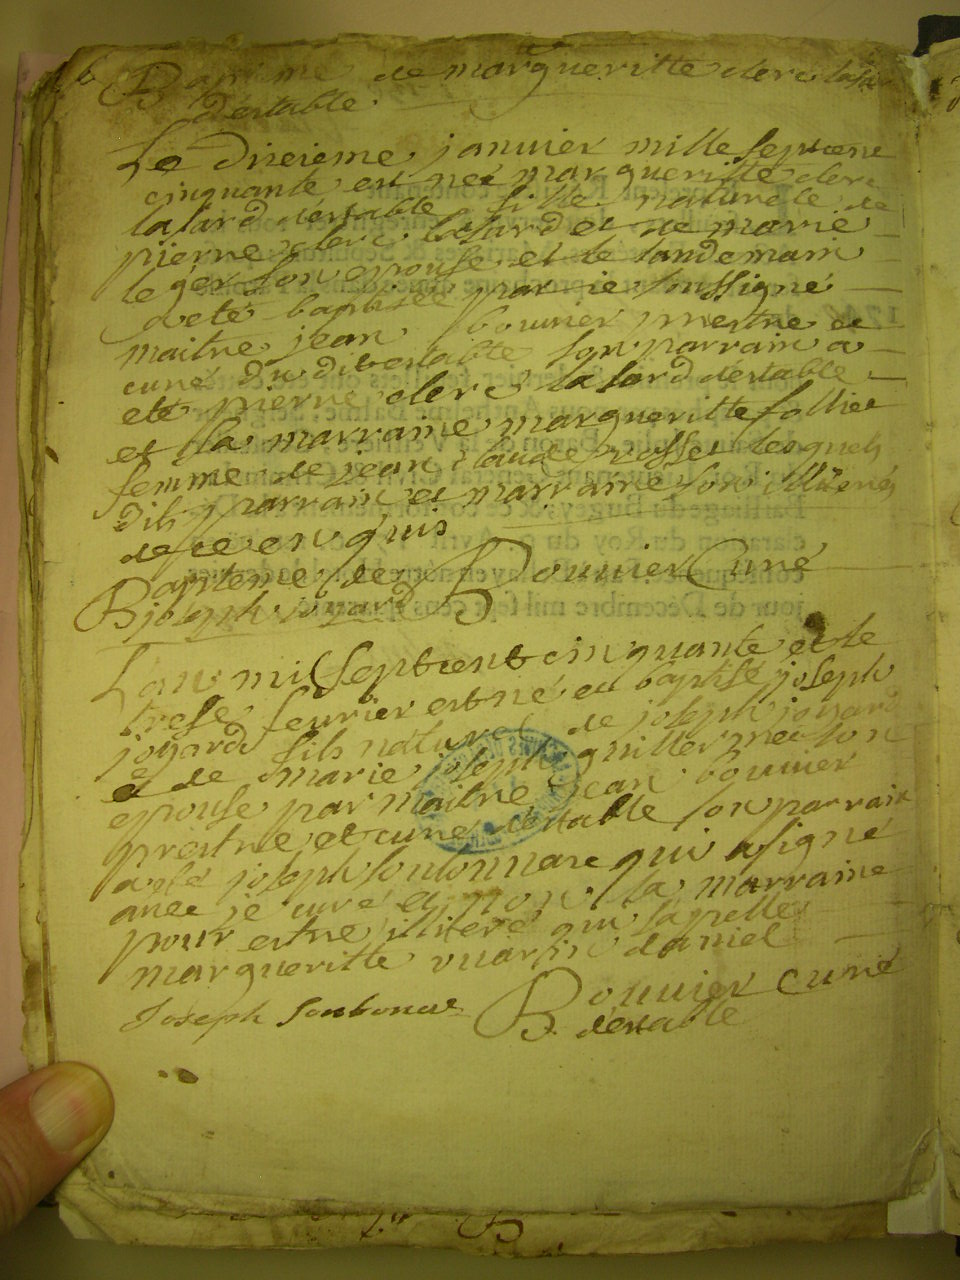 Bapteme de margueritte clerc lasard
destable.
Le dixieme janvier mille septcent
cinquante est neé margueritte clerc
lasard d'estable fille naturele de
pierre clerc lasard et de marie
leger son epouse et le landemain
a eté baptisée par mie soussigné
maitre jean bouvier prestre et
curé du dit estable son parrain a
eté pierre clerc lasard destable
et sa marraine margueritte follier
femme de jean claude rosset lesquels
dits parrain et marraine sont illiterés
de ce enquis
Bapteme de Bouvier Curé
joseph joyard
L'an mil septcent cinquante et le
trese fevrier est né et baptisé joseph
joyard fils naturel de joseph joyard
et de marie joseph guillermet son
epouse par maitre jean bouvier
prestre et curé destable son parrain
a eté joseph soubonnare qui a signé
avec je curé et non la marraine
pour estre illiteré qui s'apelle
margueritte vuarin daniel
Joseph Soubonare Bouvier curé
d'estable